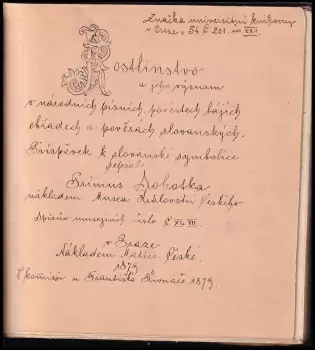 Značka universitní knihovny
v Praze: 54 C 201. XXI.
Rostlinstvo
a jeho význam
v národních písních, pověstech bájích
obřadech a pověrách slovanských.
Příspěvek k slovanské symbolice
sepsal
Primus Sobotka
nákladem Musea Království Českého
Spisův musejních číslo C XLVII.
v Praze
Nákladem Matice České.
1879
V komisi u Františka Řivnáče 1879.